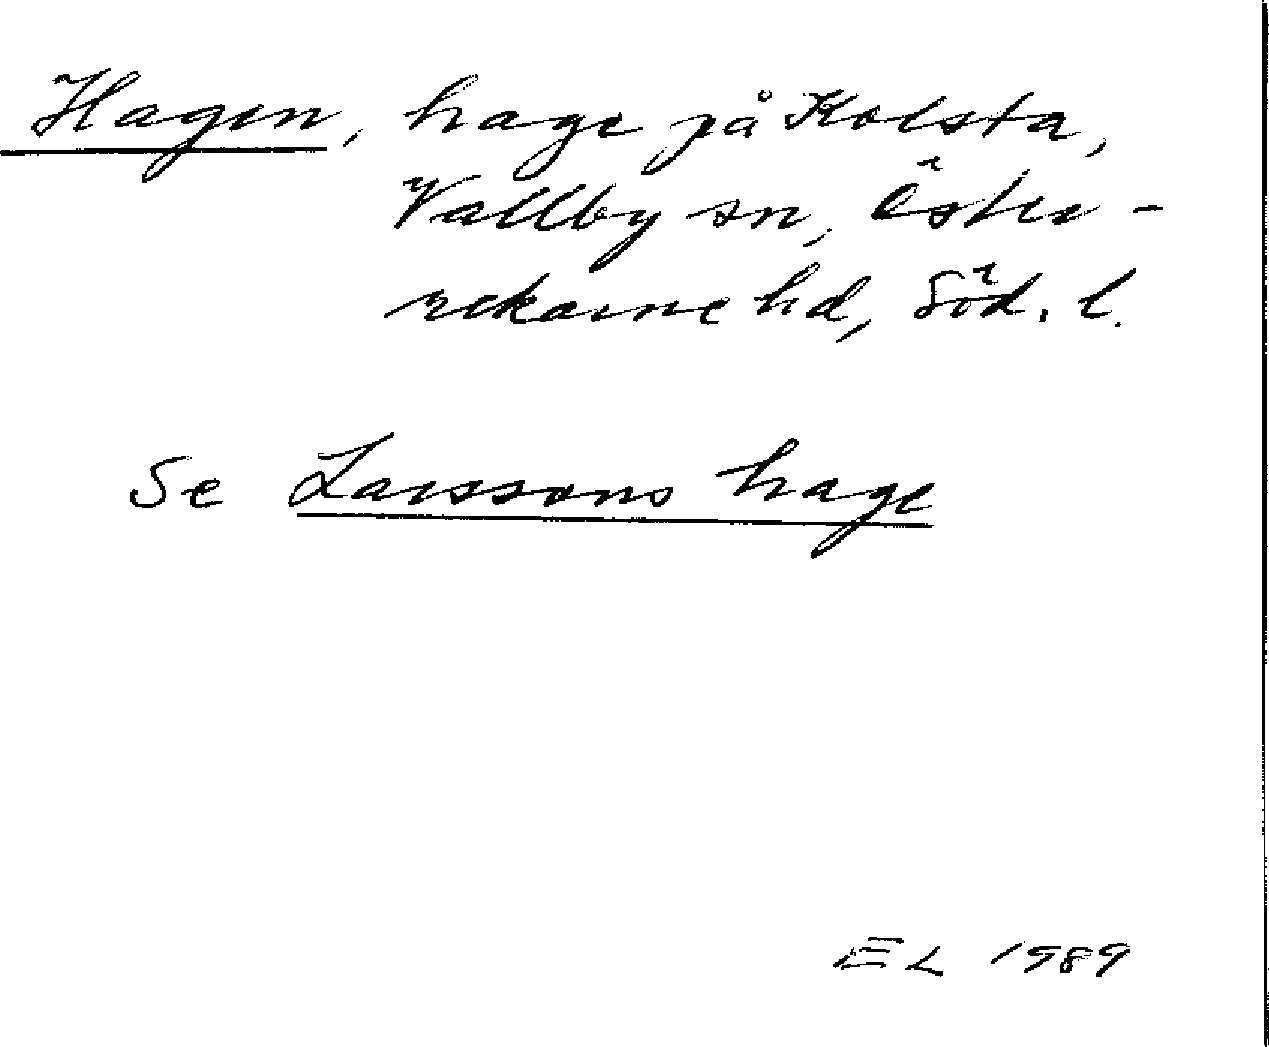 Hagen, hage på Kolsta,
Vallby sn, Öster-
rekarne hd, Söd. l.
Se Larssons hage
EL 1989